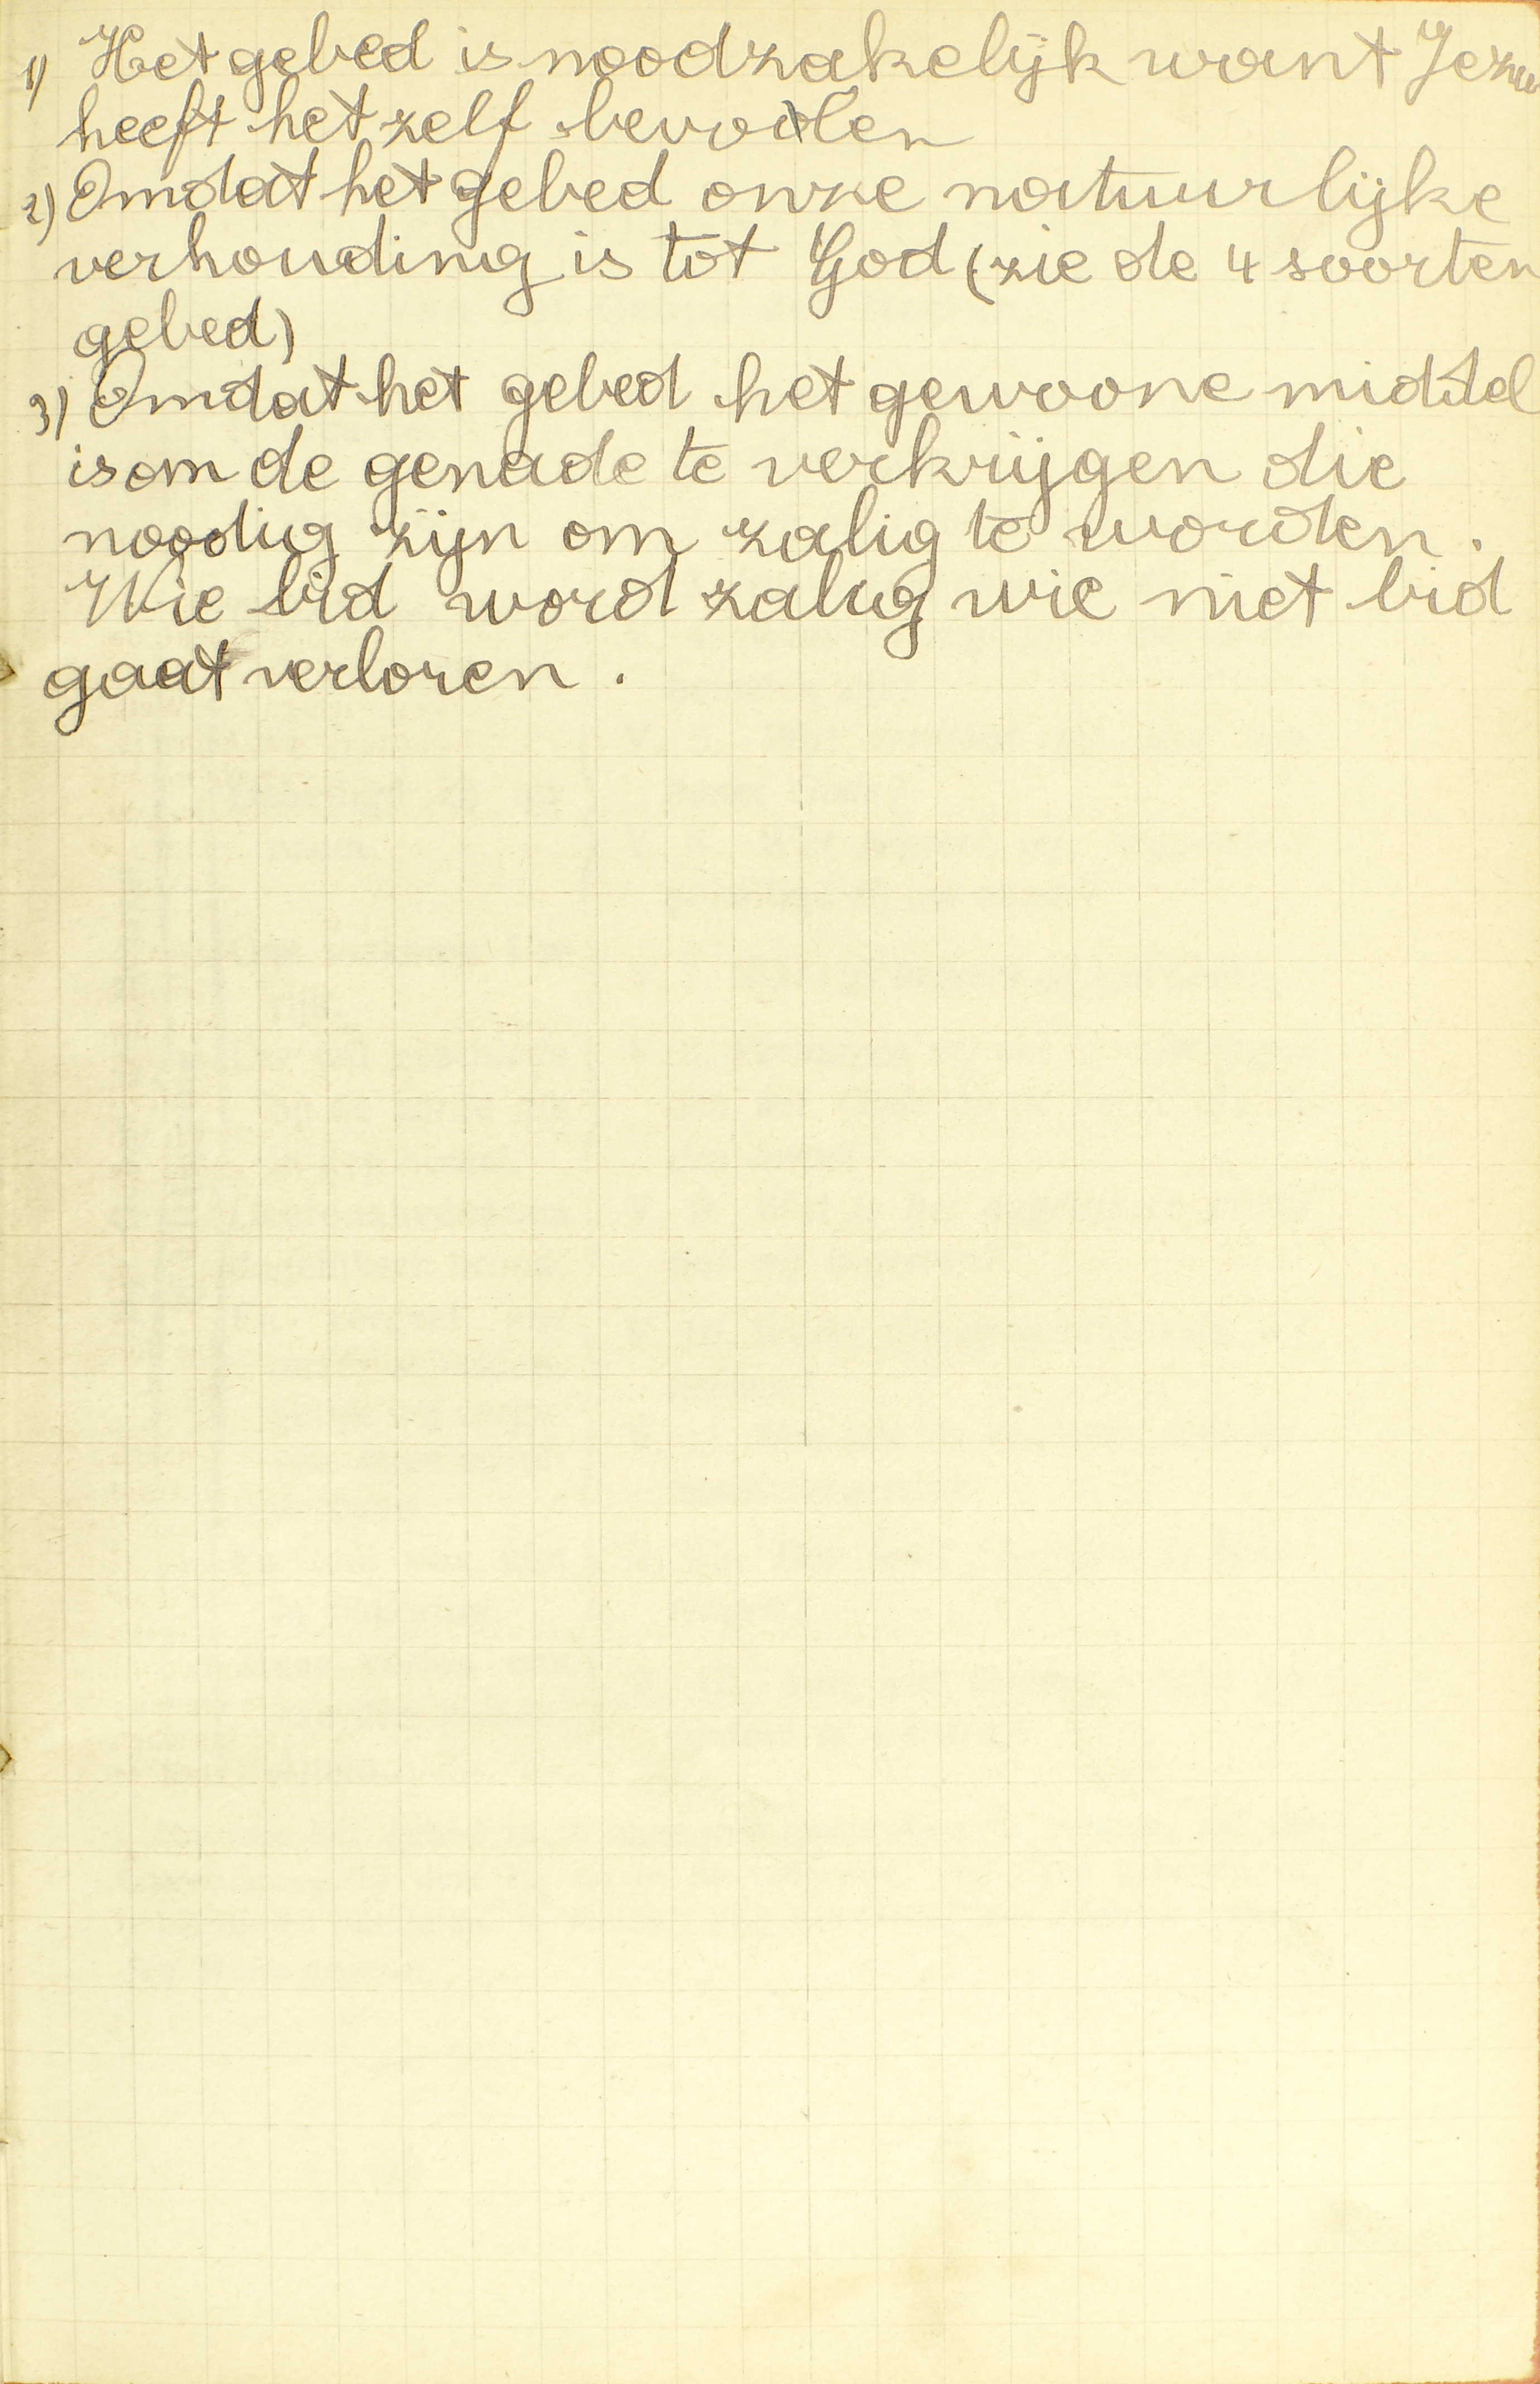 1) Het gebed is noodzakelijk want Jezus
heeft het zelf bevolen
2) Omdat het gebed onze natuurlijke
verhouding is tot God (zie de 4 soorten
gebed)
3) Omdat het gebed het gewoone middel
is om de genade te verkrijgen die
noodig zijn om zalig te worden.
Wie bid word zalig wie niet bid
gaat verloren.